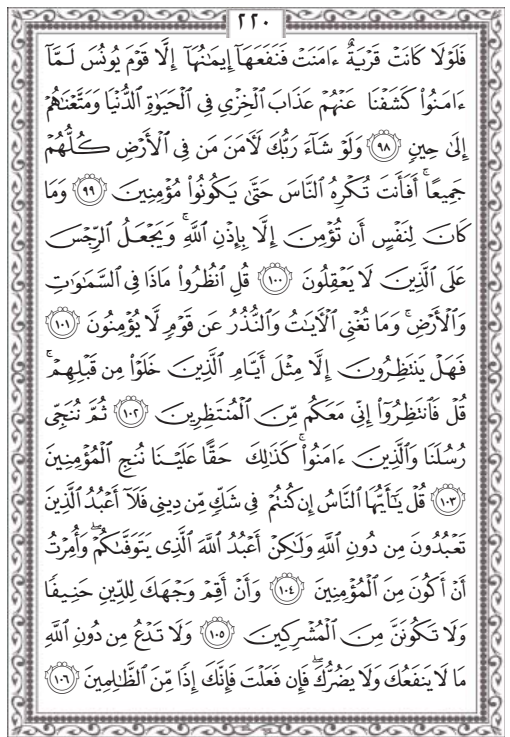 ٢٢٠
فَلَوْلَا كَانَتْ قَرْيَةٌ ءَامَنَتْ فَنَفَعَهَآ إِيمَٰنُهَآ إِلَّا قَوْمَ يُونُسَ لَمَّآ
ءَامَنُوا۟ كَشَفْنَا عَنْهُمْ عَذَابَ ٱلْخِزْىِ فِى ٱلْحَيَوٰةِ ٱلدُّنْيَا وَمَتَّعْنَٰهُمْ
إِلَىٰ حِينٍ ٩٨ وَلَوْ شَآءَ رَبُّكَ لَـَٔامَنَ مَن فِى ٱلْأَرْضِ كُلُّهُمْ
جَمِيعًا ۚ أَفَأَنتَ تُكْرِهُ ٱلنَّاسَ حَتَّىٰ يَكُونُوا۟ مُؤْمِنِينَ ٩٩ وَمَا
كَانَ لِنَفْسٍ أَن تُؤْمِنَ إِلَّا بِإِذْنِ ٱللَّهِ ۚ وَيَجْعَلُ ٱلرِّجْسَ
عَلَى ٱلَّذِينَ لَا يَعْقِلُونَ ١٠٠ قُلِ ٱنظُرُوا۟ مَاذَا فِى ٱلسَّمَٰوَٰتِ
وَٱلْأَرْضِ ۚ وَمَا تُغْنِى ٱلْـَٔايَٰتُ وَٱلنُّذُرُ عَن قَوْمٍ لَّا يُؤْمِنُونَ ١٠١
فَهَلْ يَنتَظِرُونَ إِلَّا مِثْلَ أَيَّامِ ٱلَّذِينَ خَلَوْا۟ مِن قَبْلِهِمْ ۚ
قُلْ فَٱنتَظِرُوٓا۟ إِنِّى مَعَكُم مِّنَ ٱلْمُنتَظِرِينَ ١٠٢ ثُمَّ نُنَجِّى
رُسُلَنَا وَٱلَّذِينَ ءَامَنُوا۟ ۚ كَذَٰلِكَ حَقًّا عَلَيْنَا نُنجِ ٱلْمُؤْمِنِينَ
١٠٣ قُلْ يَٰٓأَيُّهَا ٱلنَّاسُ إِن كُنتُمْ فِى شَكٍّ مِّن دِينِى فَلَآ أَعْبُدُ ٱلَّذِينَ
تَعْبُدُونَ مِن دُونِ ٱللَّهِ وَلَٰكِنْ أَعْبُدُ ٱللَّهَ ٱلَّذِى يَتَوَفَّىٰكُمْ ۖ وَأُمِرْتُ
أَنْ أَكُونَ مِنَ ٱلْمُؤْمِنِينَ ١٠٤ وَأَنْ أَقِمْ وَجْهَكَ لِلدِّينِ حَنِيفًا
وَلَا تَكُونَنَّ مِنَ ٱلْمُشْرِكِينَ ١٠٥ وَلَا تَدْعُ مِن دُونِ ٱللَّهِ
مَا لَا يَنفَعُكَ وَلَا يَضُرُّكَ ۖ فَإِن فَعَلْتَ فَإِنَّكَ إِذًا مِّنَ ٱلظَّٰلِمِينَ ١٠٦